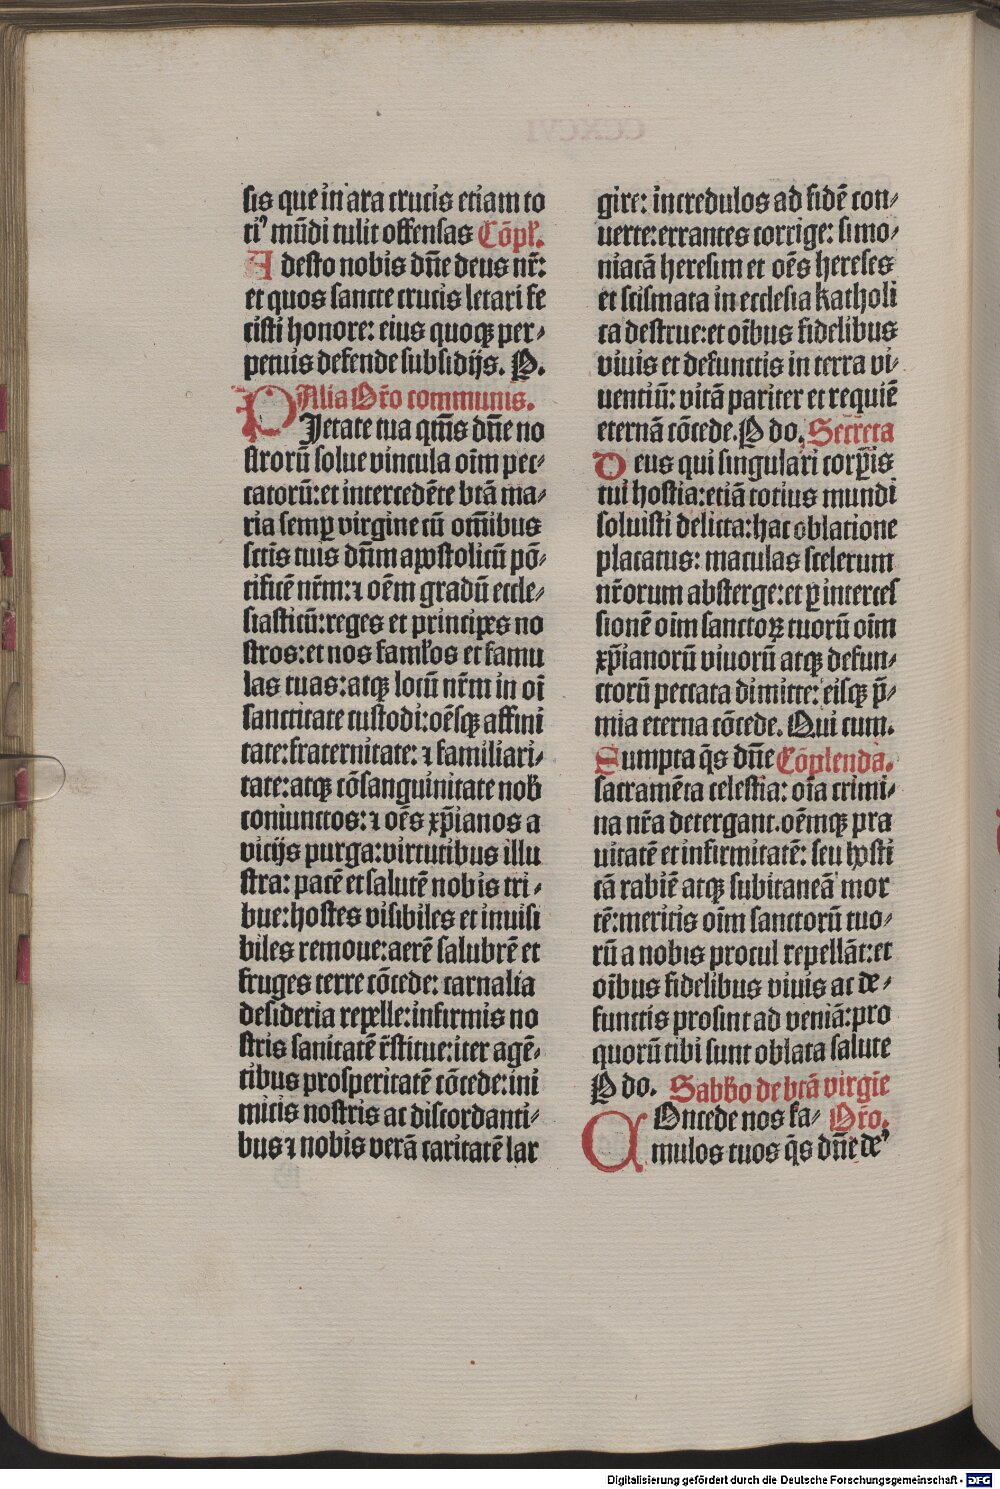 sis que in ara crucis etiam to
ti⁹ mūdi tulit offensas Cōpl̄.
Adesto nobis dn̄e deus nr̄:
et quos sancte crucis letari fe
cisti honore: eius quoqꝫ per-
petuis defende subsidijs. P.
Alia Or̄o communis.
PJetate tua qm̄s dn̄e no
stroꝝ solue vincula oīm pec-
catorū: et intercedēte btā ma-
ria semꝑ virgine cū om̄ibus
sctīs tuis dn̄m apostolicū pō-
tificē nr̄m: ⁊ oēm gradū eccle-
siasticū: reges et principes no
stros: et nos faml̄os et famu
las tuas: atqꝫ locū nr̄m in oī
sanctitate custodi: oēsqꝫ affini
tate: fraternitate: ⁊ familiari-
tate: atqꝫ cōsanguinitate nob̄
coniunctos: ⁊ oēs xp̄ianos a
vicijs purga: virtutibus illu
stra: pacē et salutē nobis tri-
bue: hostes visibiles et inuisi
biles remoue: aerē salubrē et
fruges terre cōcede: carnalia
desideria repelle: infirmis no
stris sanitatē r̄stitue: iter agē-
tibus prosperitatē cōcede: ini
micis nostris ac discordanti-
bus ⁊ nobis verā caritatē lar
gire: incredulos ad fidē con-
uerte: errantes corrige: simo-
niacā heresim et oēs hereses
et scismata in ecclesia katholi
ca destrue: et oībus fidelibus
viuis et defunctis in terra vi-
uentiū: vitā pariter et requiē
eternā cōcede. P do. Secr̄eta
Deus qui singulari corp̄is
tui hostia: etiā totius mundi
soluisti delicta: hac oblatione
placatus: maculas scelerum
nr̄orum absterge: et ꝑ interces
sionē oīm sanctoꝝ tuorū oīm
xp̄ianorū viuorū atqꝫ defun-
ctorū peccata dimitte: eisqꝫ p̄-
mia eterna cōcede. Qui cum.
Sumpta q̄s dn̄e Cōplenda.
sacramēta celestia: oīa crimi-
na nr̄a detergant. oēmqꝫ pra
uitatē et infirmitatē: seu hosti
cā rabiē atqꝫ subitaneā mor
tē: meritis oīm sanctorū tuo-
rū a nobis procul repellāt: et
oībus fidelibus viuis ac de-
functis prosint ad veniā: pro
quorū tibi sunt oblata salute
P do. Sabb̄o de btā virgīe
COncede nos fa- Or̄o.
mulos tuos q̄s dn̄e de⁹
Digitalisierung gefördert durch die Deutsche Forschungsgemeinschaft - DFG